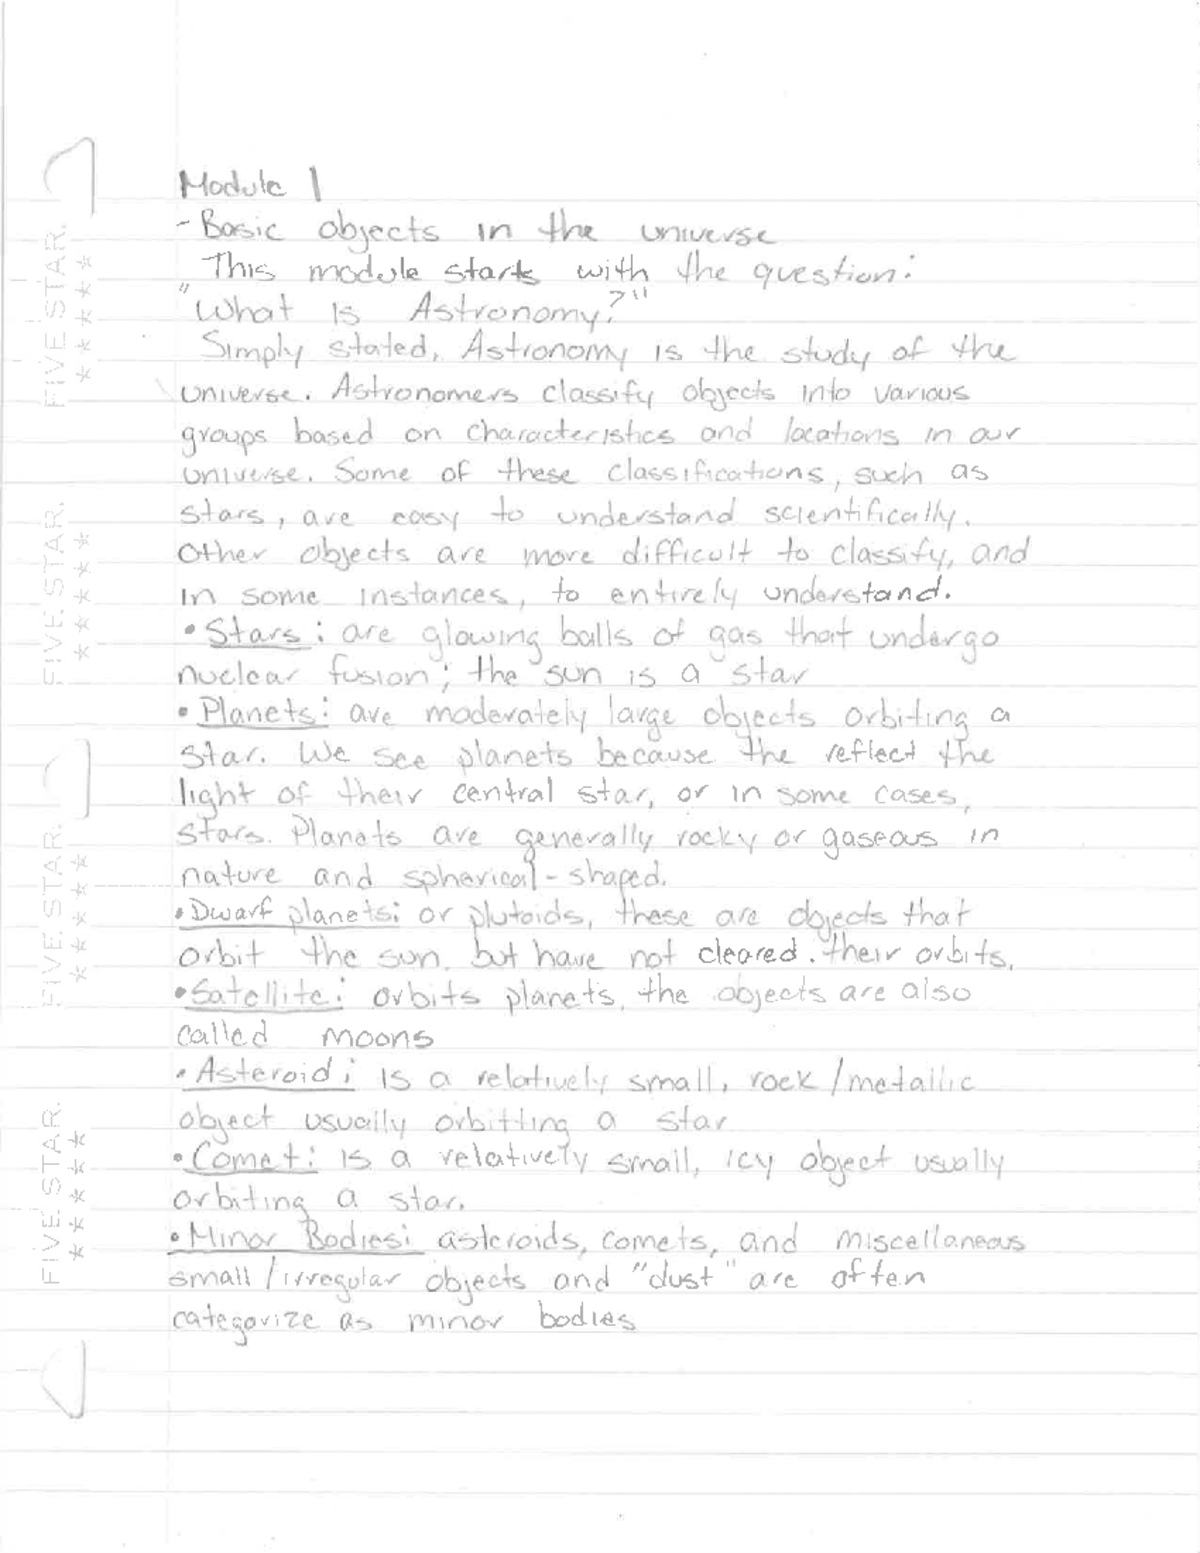 Module 1
- Basic objects in the universe
This module starts with the question:
"What is Astronomy?"
Simply stated, Astronomy is the study of the
universe. Astronomers classify objects into various
groups based on characteristics and locations in our
universe. Some of these classifications, such as
stars, are easy to understand scientifically.
Other objects are more difficult to classify, and
in some instances, to entirely understand.
• Stars: are glowing balls of gas that undergo
nuclear fusion; the sun is a star
• Planets: are moderately large objects orbiting a
star. We see planets because the reflect the
light of their central star, or in some cases,
stars. Planets are generally rocky or gaseous in
nature and spherical-shaped.
• Dwarf planets: or plutoids, these are objects that
orbit the sun, but have not cleared their orbits.
• Satellite: orbits planets, the objects are also
called moons
• Asteroid: is a relatively small, rock/metallic
object usually orbitting a star
• Comet: is a relatively small, icy object usually
orbiting a star.
• Minor Bodies: asteroids, comets, and miscellaneous
small/irregular objects and "dust" are often
categorize as minor bodies
FIVE STAR.
★★★★
FIVE STAR.
★★★★
FIVE STAR.
★★★★
FIVE STAR.
★★★★